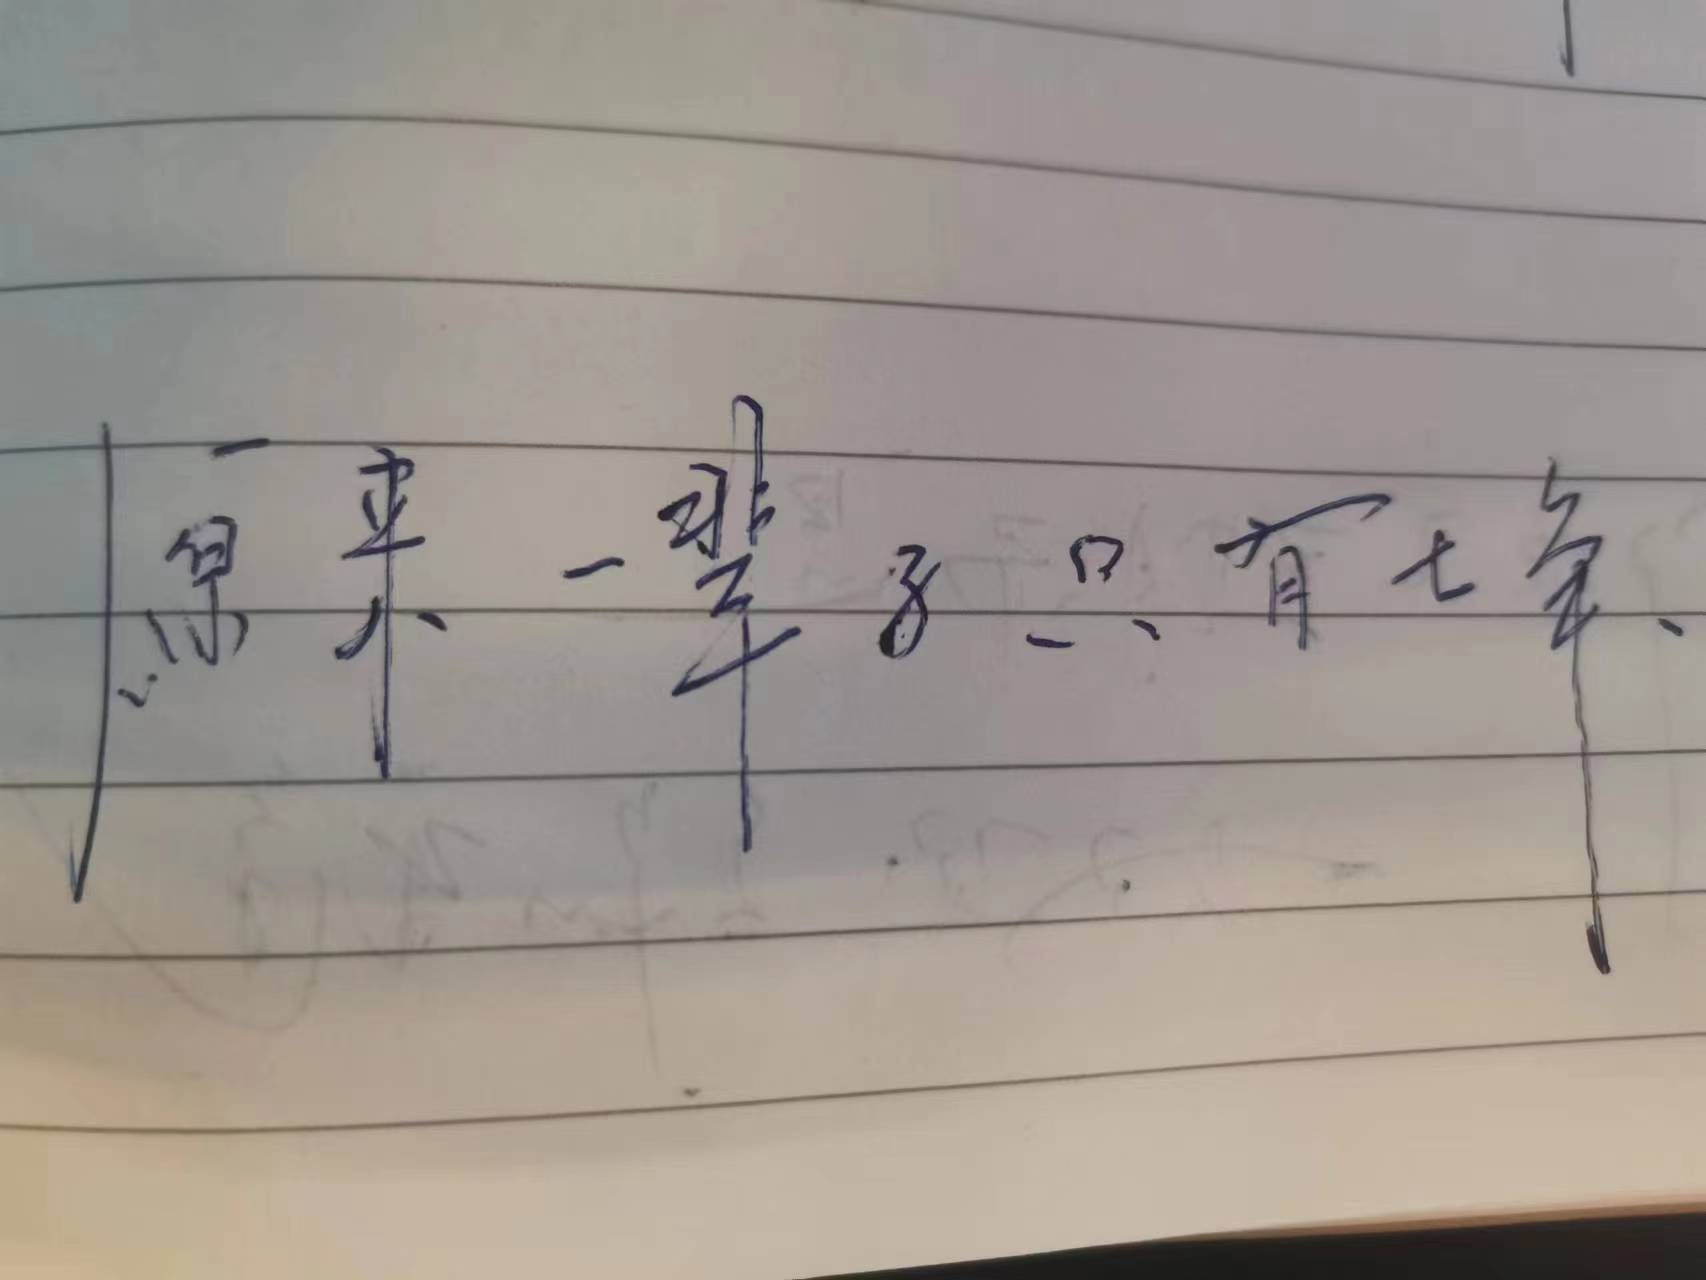 源来一辈子只有七年、